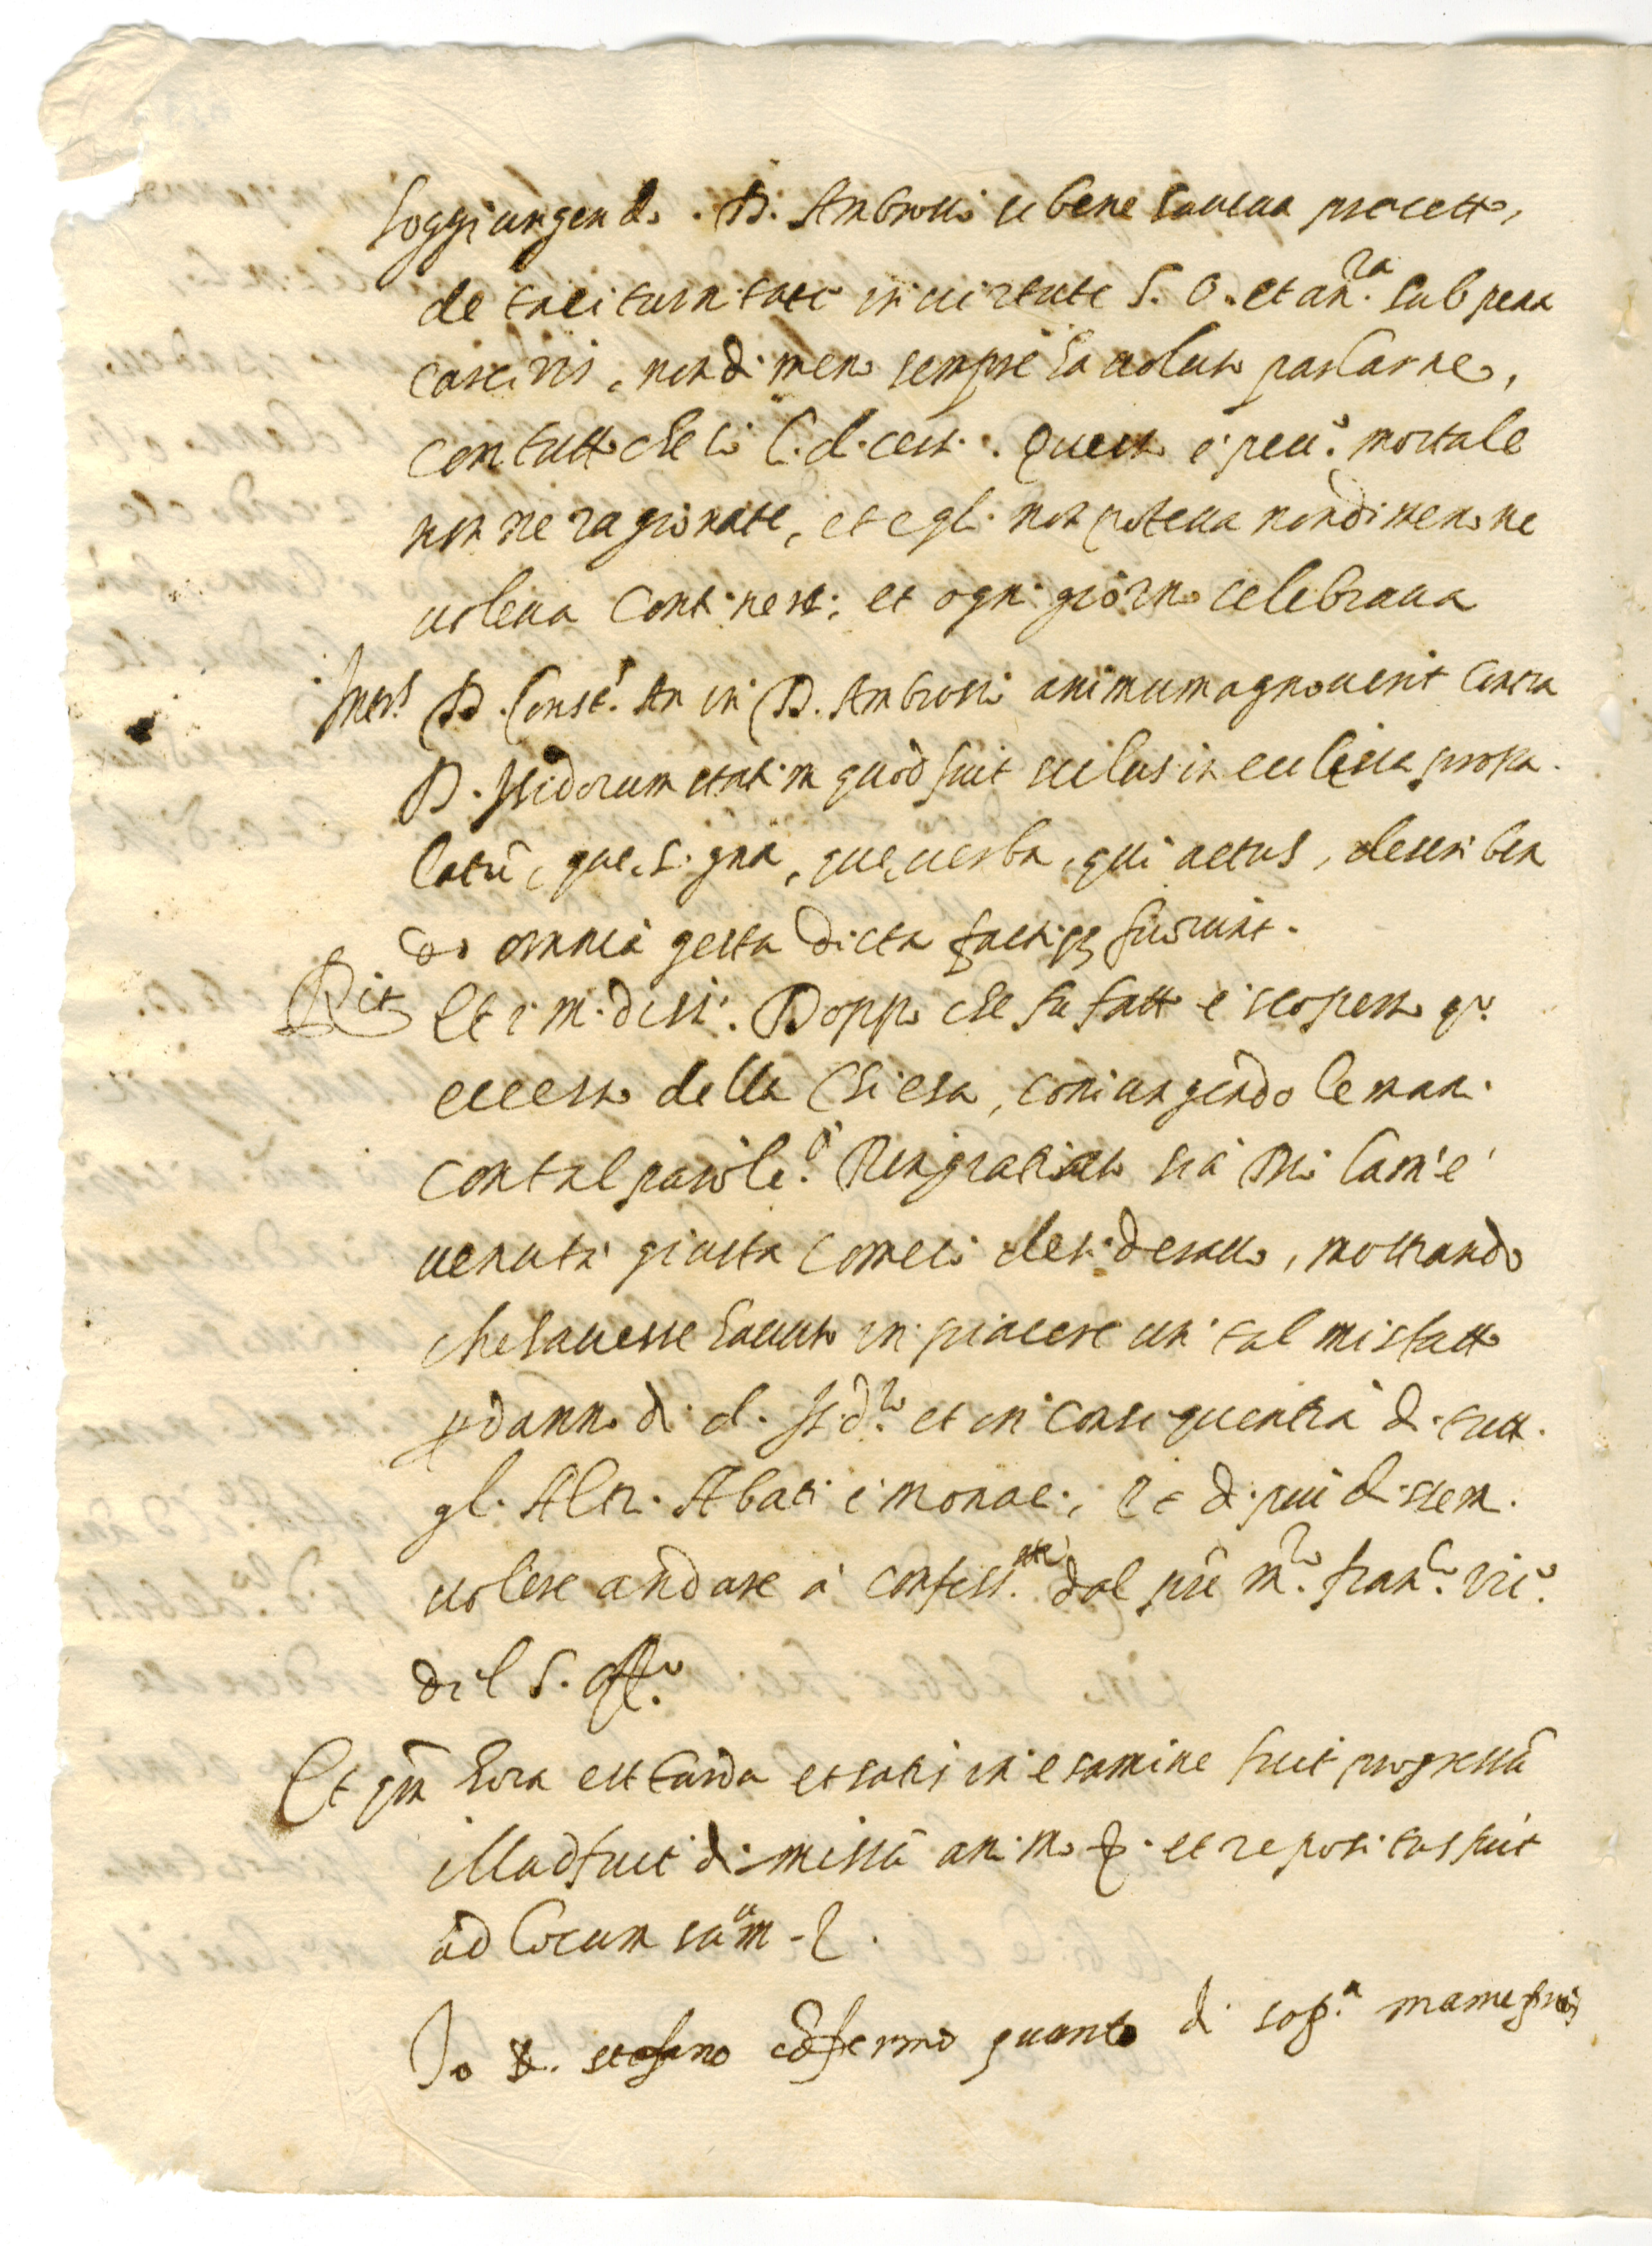 soggiungendo. D. Ambrosio se bene haveva precetto,
de taciturnitate in virtute S. O. et an.ra sub pena
carceris, nondimeno sempre ha voluto parlarne,
con tutto che li si dicesti. Questo è pecc.o mortale
non ne ragionate, et egli non poteva nondimeno ne
voleva contenersi, et ogni giorno celebrava
Inter.s D. Const.s An in D. Ambrosio animum agnoverit contra
D. Isidorum statim quod fuit scelus in ecclesia propa
latũ, que signa, que verba, qui actus, describen
do omnia gesta dicta factiq; fuerunt.
R.it Et i m. dissi. Doppo che fu fatto e scoperto q.o
eccesso della Chiesa, coniungendo le mani
con tal parole. Rengratiato sia Dio la m'è
venuta giusta come io desideravo, mostrando
che havesse havuto in piacere un tal misfatto
p danno di d. Isid.ro et in consequentia di tutti
gl. Altri Abati e monaci, et di più di scem.
volere andare à confess.arse dal prẽ m.ro fran.co vic.o
dil S. Off.o
Et qm̃ hora est tarda et satis in esamine fuit progressũ
illud fuit dimissũ animo &. et repositus fuit
ad locum suũm -&.
Io D. stefano cõfermo quanto di sop.a mano pp.a